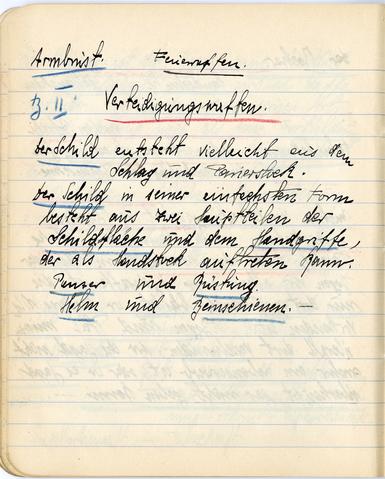 Armbrust. Feuerwaffen.
B. II
Verteidigungswaffen.
der Schild entsteht vielleicht aus dem
Schlag und Parierstock.
Der Schild in seiner einfachsten Form
besteht aus zwei Hauptteilen der
Schildfläche und dem Handgriffe,
der als Handstock auftreten kann.
Panzer und Rüstung.
Helm und Beinschienen. —